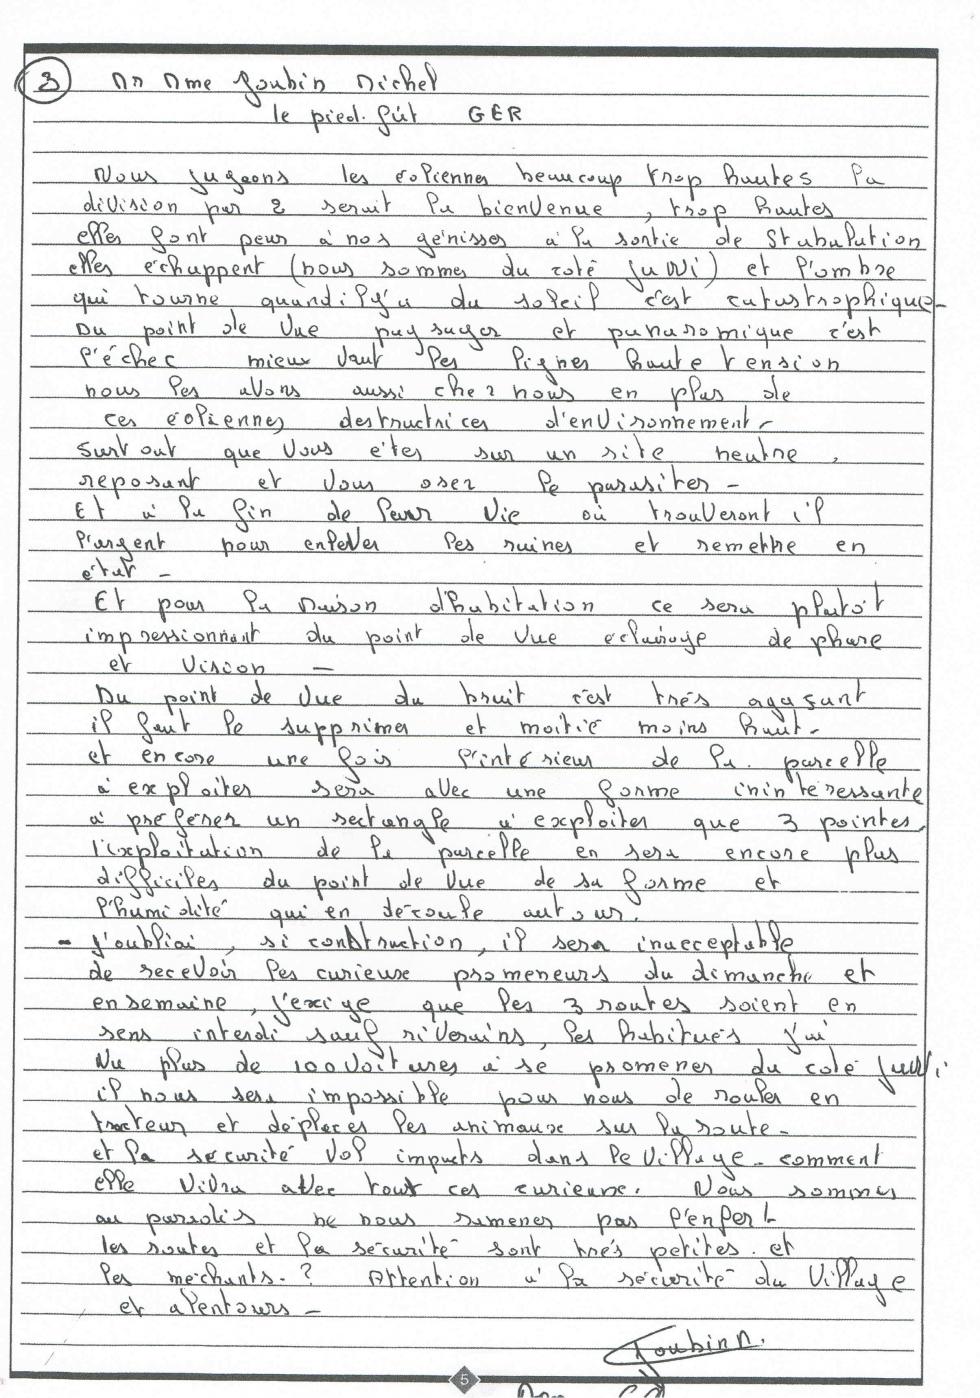 3 Mr Mme Joubin Michel
le pied. fût GER
Nous jugeons les éoliennes beaucoup trop hautes la
division par 2 serait la bienvenue, trop hautes
elles font peur à nos génisses à la sortie de Stabulation
elles échappent (nous sommes du coté juwi) et l'ombre
qui tourne quand il y'a du soleil c'est catastrophique-
Du point de vue paysager et panaromique c'est
l'échec mieux vaut les lignes haute tension
nous les avons aussi chez nous en plus de
ces éoliennes destructrices d'environnement-
Surtout que vous êtes sur un site neutre,
reposant et vous osez le parasiter-
Et à la fin de leur vie où trouveront i'l
l'argent pour enlever les ruines et remettre en
état-
Et pour la maison d'habitation ce sera plutôt
impressionnant du point de vue éclairage de phare
et vision-
Du point de vue du bruit c'est très agaçant
il faut le supprimer et moitié moins haut-
et encore une fois l'intérieur de la parcelle
à exploiter sera avec une forme inintéressante
à préférer un rectangle à exploiter que 3 pointes,
l'exploitation de la parcelle en sera encore plus
difficiles du point de vue de sa forme et
l'humidité qui en découle autour.
- J'oubliai, si construction, il sera inacceptable
de recevoir les curieux promeneurs du dimanche et
en semaine, j'exige que les 3 routes soient en
sens interdi sauf riverains, les habitués j'ai
Vu plus de 100 voitures à se promener du coté juwi
il nous sera impossible pour nous de rouler en
tracteur et déplacer les animaux sur la route-
et la sécurité vol impacts dans le village- comment
elle vivra avec tout ces curieux. Nous sommes
au paradis ne nous ramener pas l'enfer!-
les routes et la sécurité sont très petites. et
les méchants-? Attention à la sécurité du Village
et alentours-
Joubin M.
5